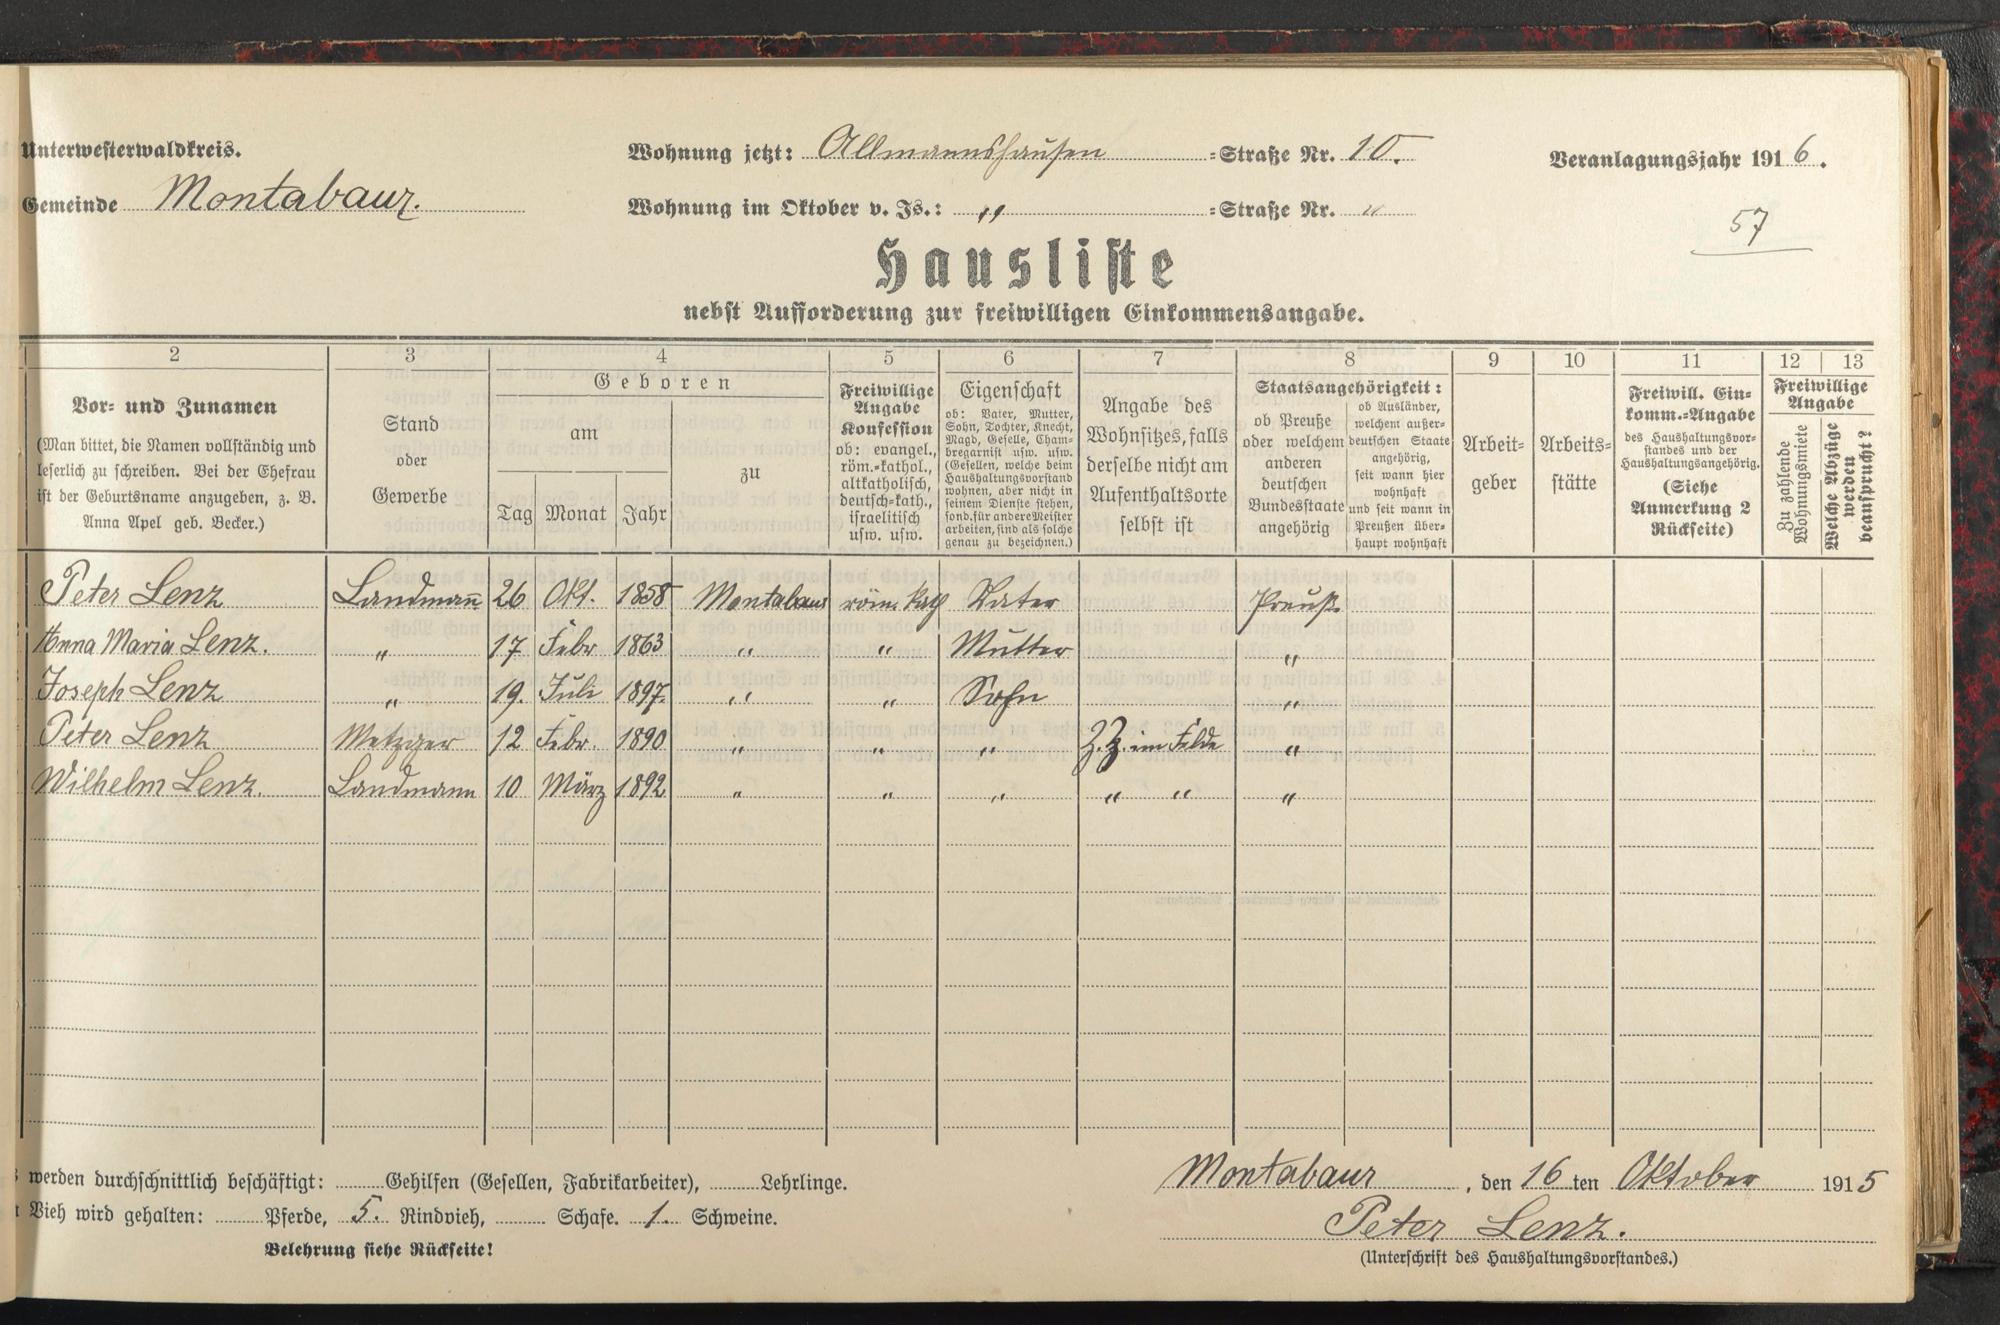 Unterwesterwaldkreis.
Wohnung jetzt: Allmannshausen =Straße Nr. 10.
Veranlagungsjahr 1916.
Gemeinde Montabaur.
Wohnung im Oktober v. Js.: " =Straße Nr. "
57
Hausliste
nebst Aufforderung zur freiwilligen Einkommensangabe.
2 3 4 5 6 7 8 9 10 11 12 13
Vor= und Zunamen
(Man bittet, die Namen vollständig und
leserlich zu schreiben. Bei der Ehefrau
ist der Geburtsname anzugeben, z. B.
Anna Apel geb. Becker.)
Stand
oder
Gewerbe
Geboren
am
Tag Monat Jahr
zu
Freiwillige
Angabe
Konfession
ob: evangel.,
röm.=kathol.,
altkatholisch,
deutsch=kath.,
israelitisch
usw. usw.
Eigenschaft
ob: Vater, Mutter,
Sohn, Tochter, Knecht,
Magd, Geselle, Cham=
bregarnist usw. usw.
(Gesellen, welche beim
Haushaltungsvorstand
wohnen, aber nicht in
seinem Dienste stehen,
sond. für andere Meister
arbeiten, sind als solche
genau zu bezeichnen.)
Angabe des
Wohnsitzes, falls
derselbe nicht am
Aufenthaltsorte
selbst ist
Staatsangehörigkeit:
ob Preuße
oder welchem
anderen
deutschen
Bundesstaate
angehörig
ob Ausländer,
welchem außer=
deutschen Staate
angehörig,
seit wann hier
wohnhaft
und seit wann in
Preußen über=
haupt wohnhaft
Arbeit=
geber
Arbeits=
stätte
Freiwill. Ein=
komm.=Angabe
des Haushaltungsvor=
standes und der
Haushaltungsangehörig.
(Siehe
Anmerkung 2
Rückseite)
Freiwillige
Angabe
Zu zahlende
Wohnungsmiete
Welche Abzüge
werden
beansprucht?
Peter Lenz Landmann 26 Okt. 1858 Montabaur röm. kath Vater Preuß.
Anna Maria Lenz. " 17 Febr 1863 " " Mutter "
Joseph Lenz " 19. Juli 1897. " " Sohn "
Peter Lenz Metzger 12 Febr. 1890 " " " Z. Z. im Felde "
Wilhelm Lenz. Landmann 10 März 1892 " " " " " "
werden durchschnittlich beschäftigt: Gehilfen (Gesellen, Fabrikarbeiter), Lehrlinge.
Vieh wird gehalten: Pferde, 5. Rindvieh, Schafe. 1. Schweine.
Belehrung siehe Rückseite!
Montabaur, den 16 ten Oktober 1915
Peter Lenz.
(Unterschrift des Haushaltungsvorstandes.)